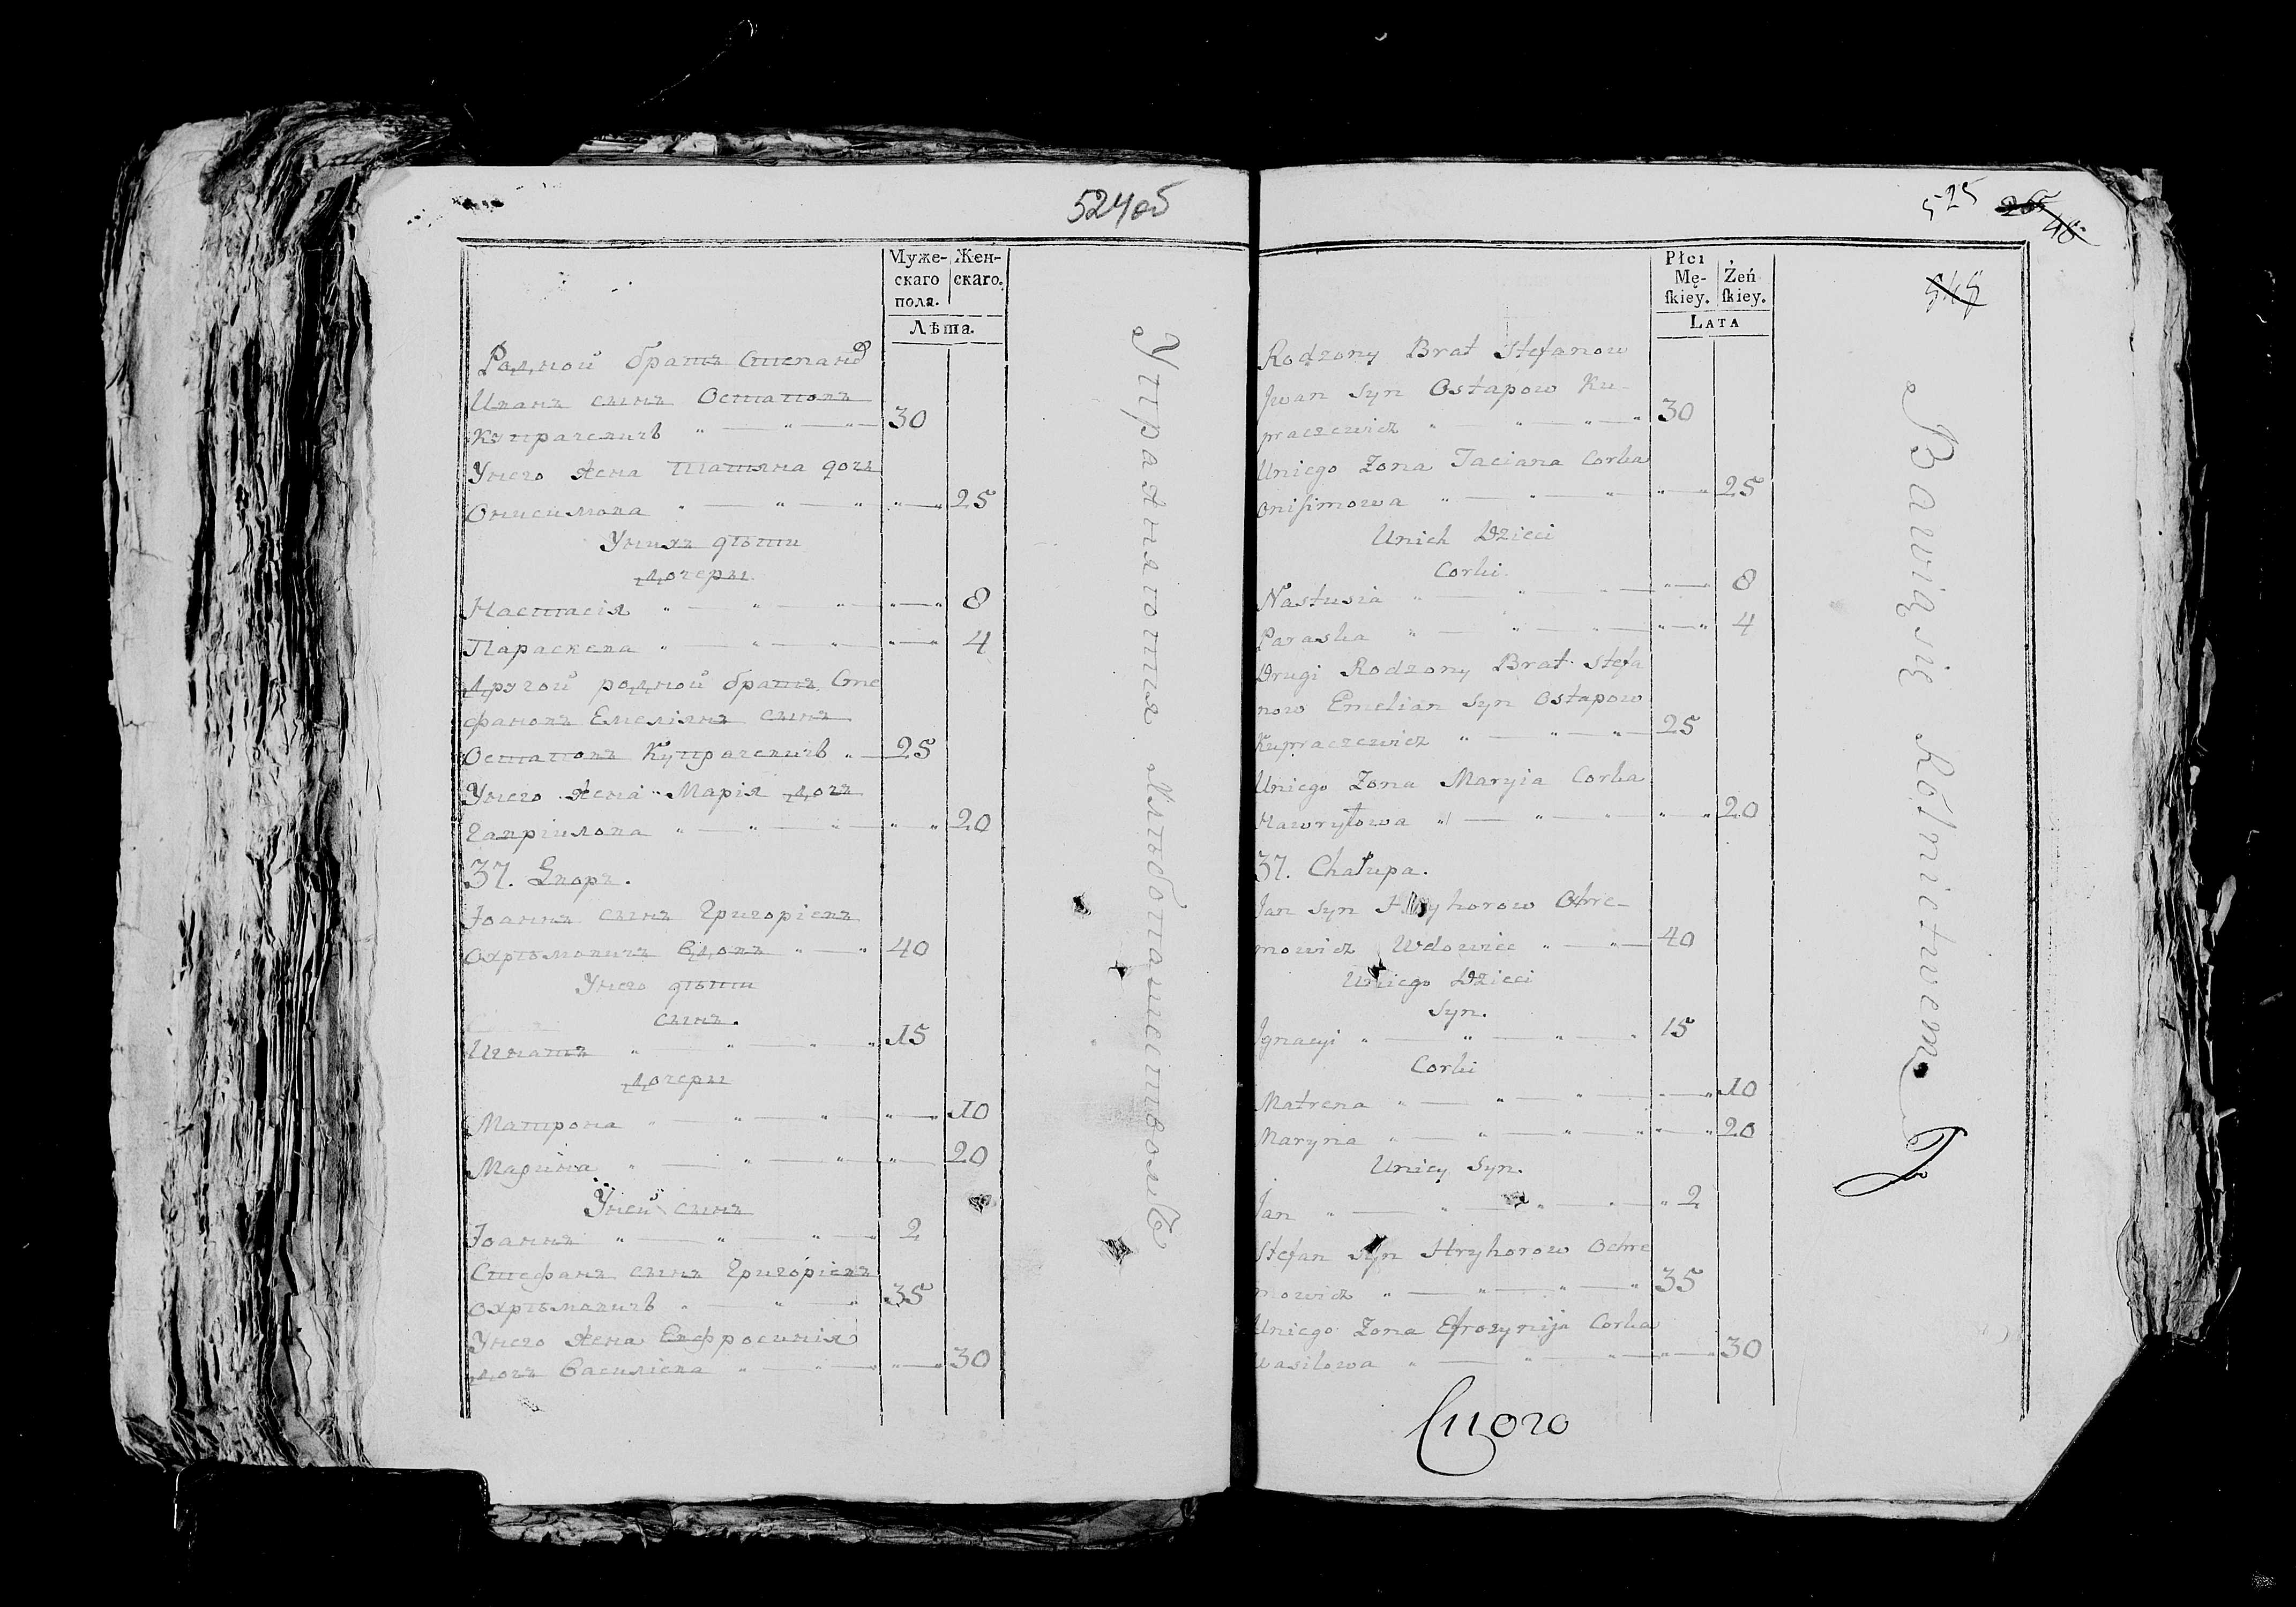 524об
Муже-
скаго
пола.
Жен-
скаго.
Лѣта.
Родной братъ Степановъ
Иванъ сынъ Остаповъ
Купрачевичъ 30
Унего жена Татяна дочь
Онисимова 25
Унихъ дѣти
дочери.
Настасія 8
Параскева 4
Другой родной братъ Сте
фановъ Емеліянъ сынъ
Остаповъ Купрачевичъ 25
Унего жена Марія дочь
Гавріилова 20
37. Дворъ.
Іоаннъ сынъ Григоріевъ
Охрѣмовичъ вдовъ 40
Унего дѣти
сынъ.
Игнатъ 15
дочери
Матрона 10
Марина 20
Уней сынъ
Іоаннъ 2
Стефанъ сынъ Григоріевъ
Охрѣмовичъ 35
Унего жена Евфросинія
дочь Василіева 30
Упражняются Хлѣбопашествомъ
525
Płci
Mę-
ſkiey.
Żeń
ſkiey.
LATA
Rodzony Brat Stefanow
Jwan Syn Ostapow Ku-
praczewicz 30
Uniego Zona Taciana Corka
Onisimowa 25
Unich Dzieci
Corki.
Nastusia 8
Paraska 4
Drugi Rodzony Brat Stefa
now Emelian Syn Ostapow
Kupraczewicz 25
Uniego Zona Maryia Corka
Hawryłowa 20
37. Chałupa.
Jan Syn Hryhorow Ochre-
mowicz Wdowiec 40
Uniego Dzieci
Syn.
Jgnacyi 15
Corki
Matrena 10
Maryna 20
Unicy Syn.
Jan 2
Stefan Syn Hryhorow Ochre
mowicz 35
Uniego Zona Efrozynija Corka
Wasilowa 30
Bawią się Rolnictwem.